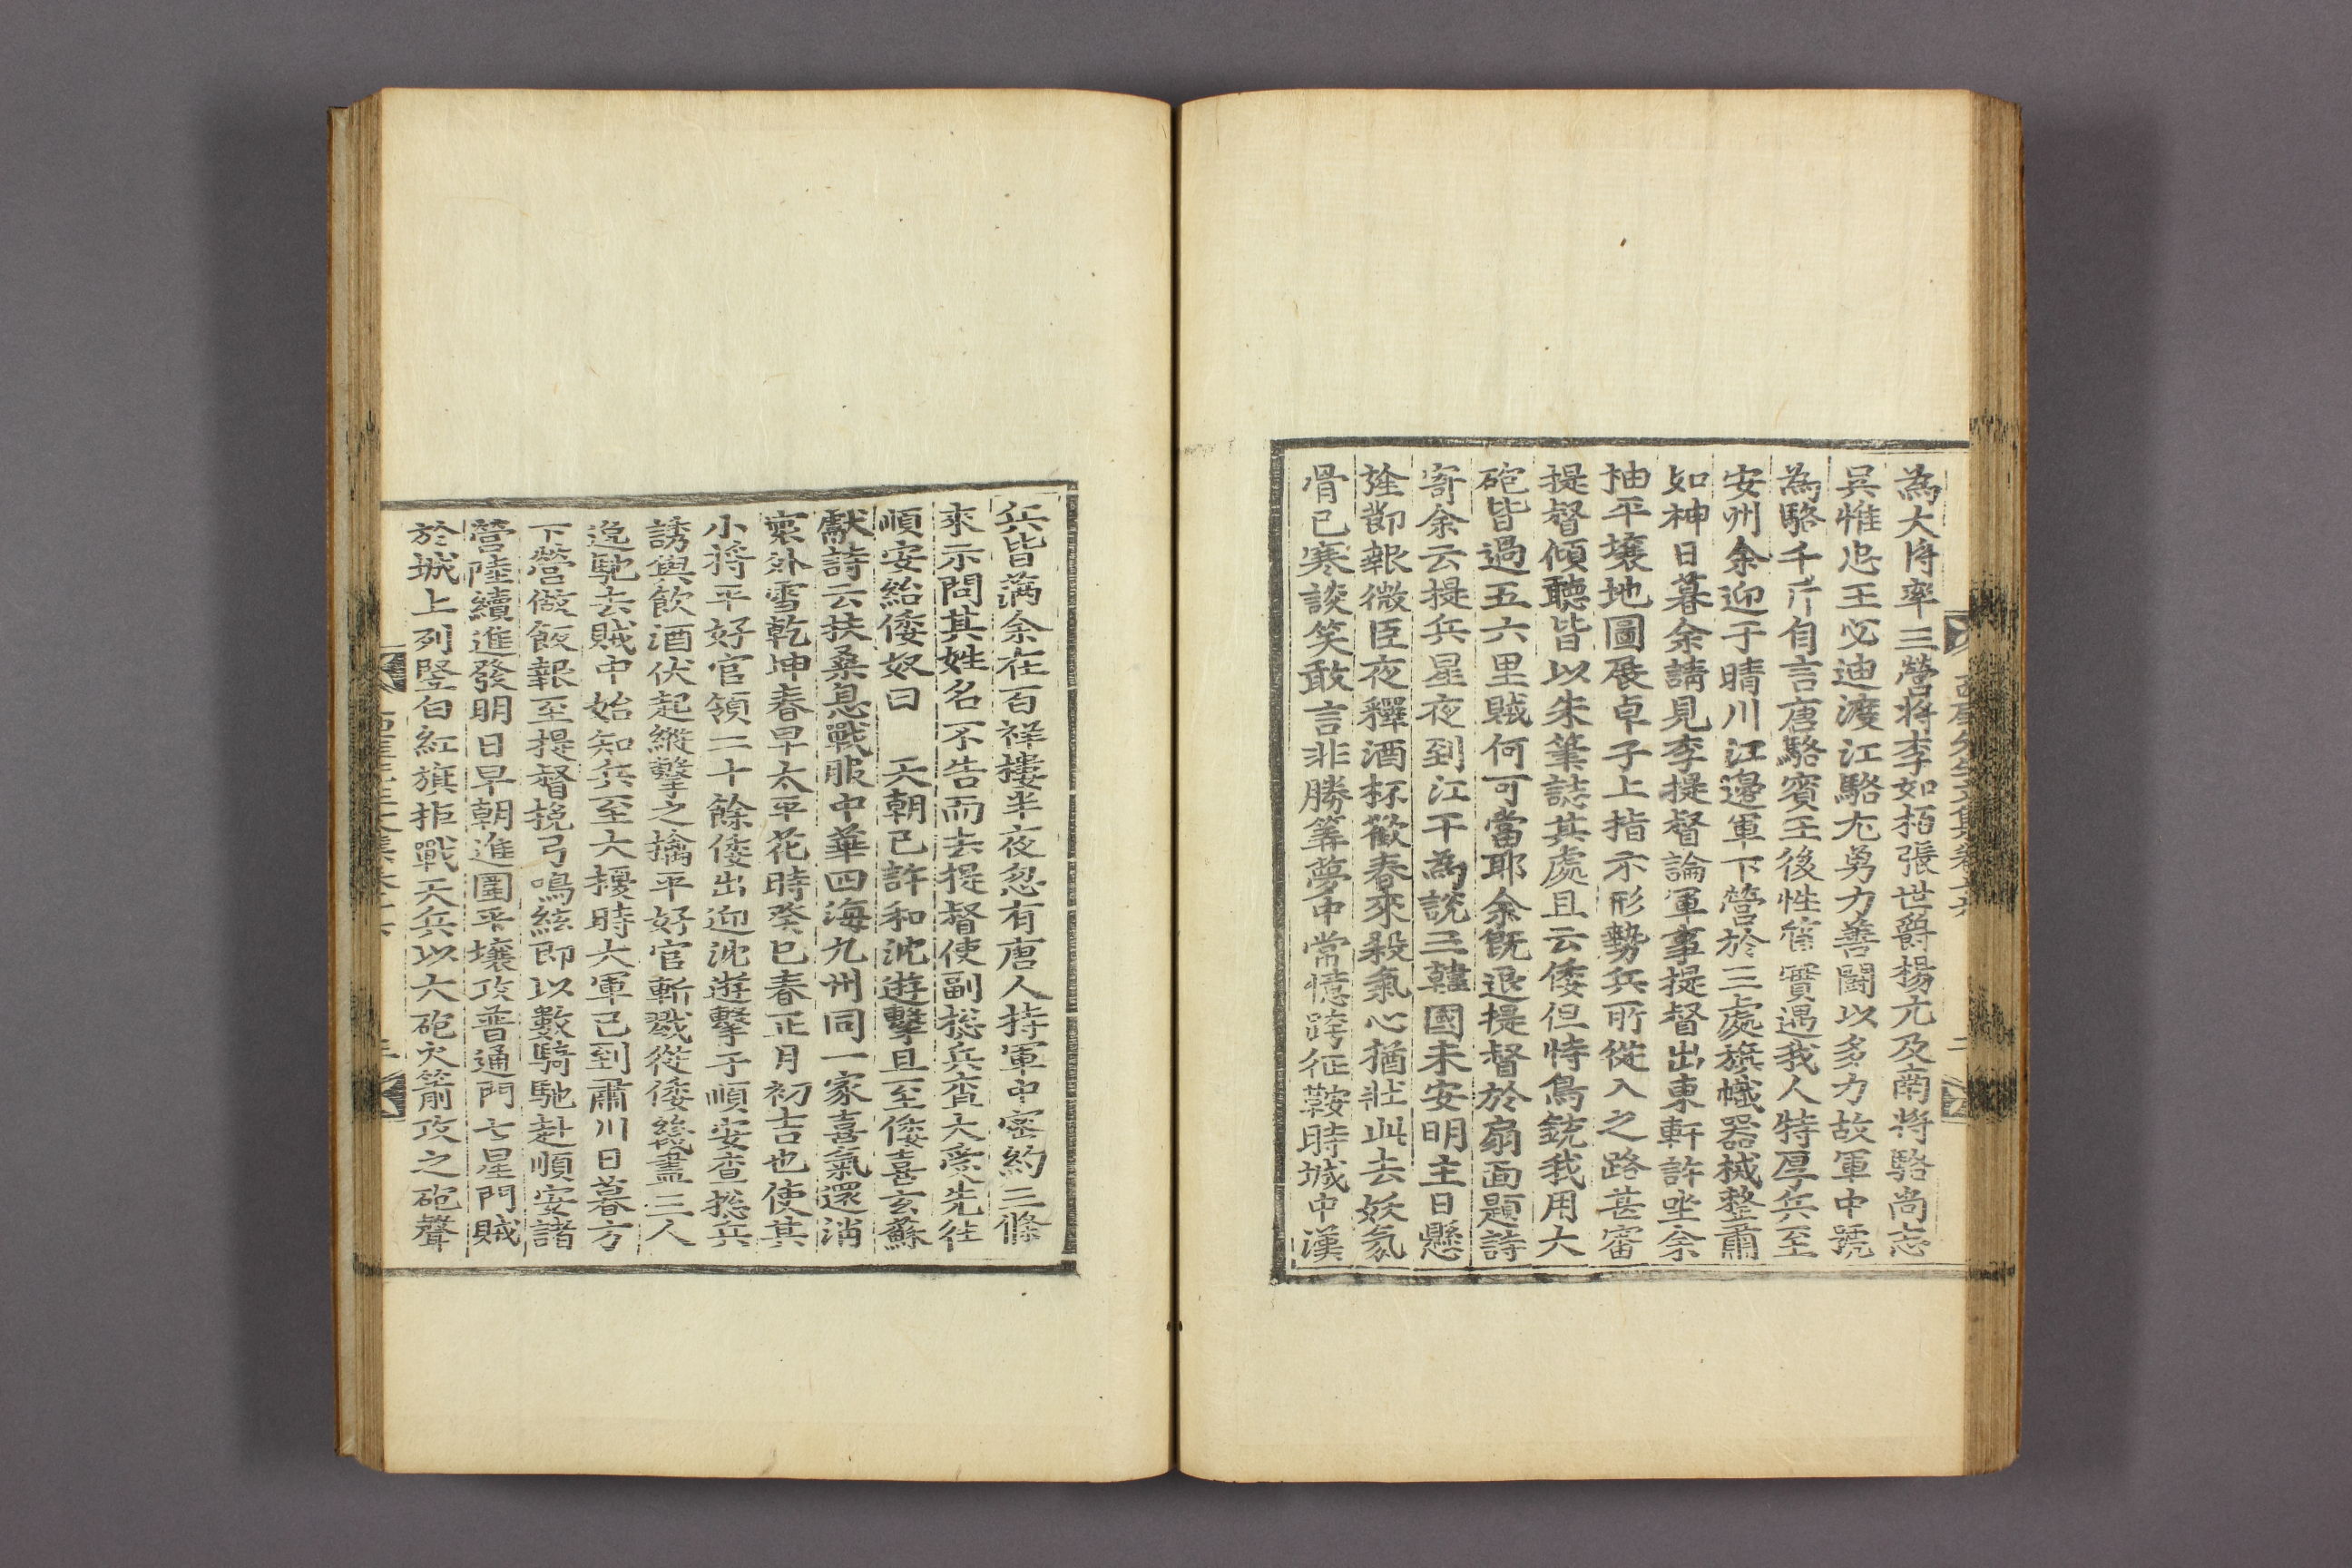 為大將率三營將李如栢張世爵楊元及南將駱尚志
吳惟忠王必迪渡江駱尤勇力善鬪以多力故軍中號
為駱千斤自言唐駱賓王後性篤實遇我人特厚兵至
安州余迎于晴川江邊軍下營於三處旗幟器械整肅
如神日暮余請見李提督論軍事提督出東軒許坐余
抽平壤地圖展卓子上指示形勢兵所從入之路甚審
提督傾聽皆以朱筆誌其處且云倭但恃鳥銃我用大
砲皆過五六里賊何可當耶余旣退提督於扇面題詩
寄余云提兵星夜到江干為說三韓國未安明主日懸
旌節報微臣夜釋酒杯歡春來殺氣心猶壯此去妖氛
骨已寒談笑敢言非勝筭夢中常憶跨征鞍時城中漢
西厓先生文集卷十六 二
兵皆滿余在百祥樓半夜忽有唐人持軍中密約三條
來示問其姓名不告而去提督使副摠兵査大受先往
順安紿倭奴曰 天朝已許和沈遊擊且至倭喜玄蘇
獻詩云扶桑息戰服中華四海九州同一家喜氣還消
寰外雪乾坤春早太平花時癸巳春正月初吉也使其
小將平好官領二十餘倭出迎沈遊擊于順安査摠兵
誘與飮酒伏起縱擊之擒平好官斬戮從倭幾盡三人
逸馳去賊中始知兵至大擾時大軍已到肅川日暮方
下營做飯報至提督挽弓鳴絃即以數騎馳赴順安諸
營陸續進發明日早朝進圍平壤攻普通門七星門賊
於城上列竪白紅旗拒戰天兵以大砲火箭攻之砲聲
西厓先生文集卷十六 三